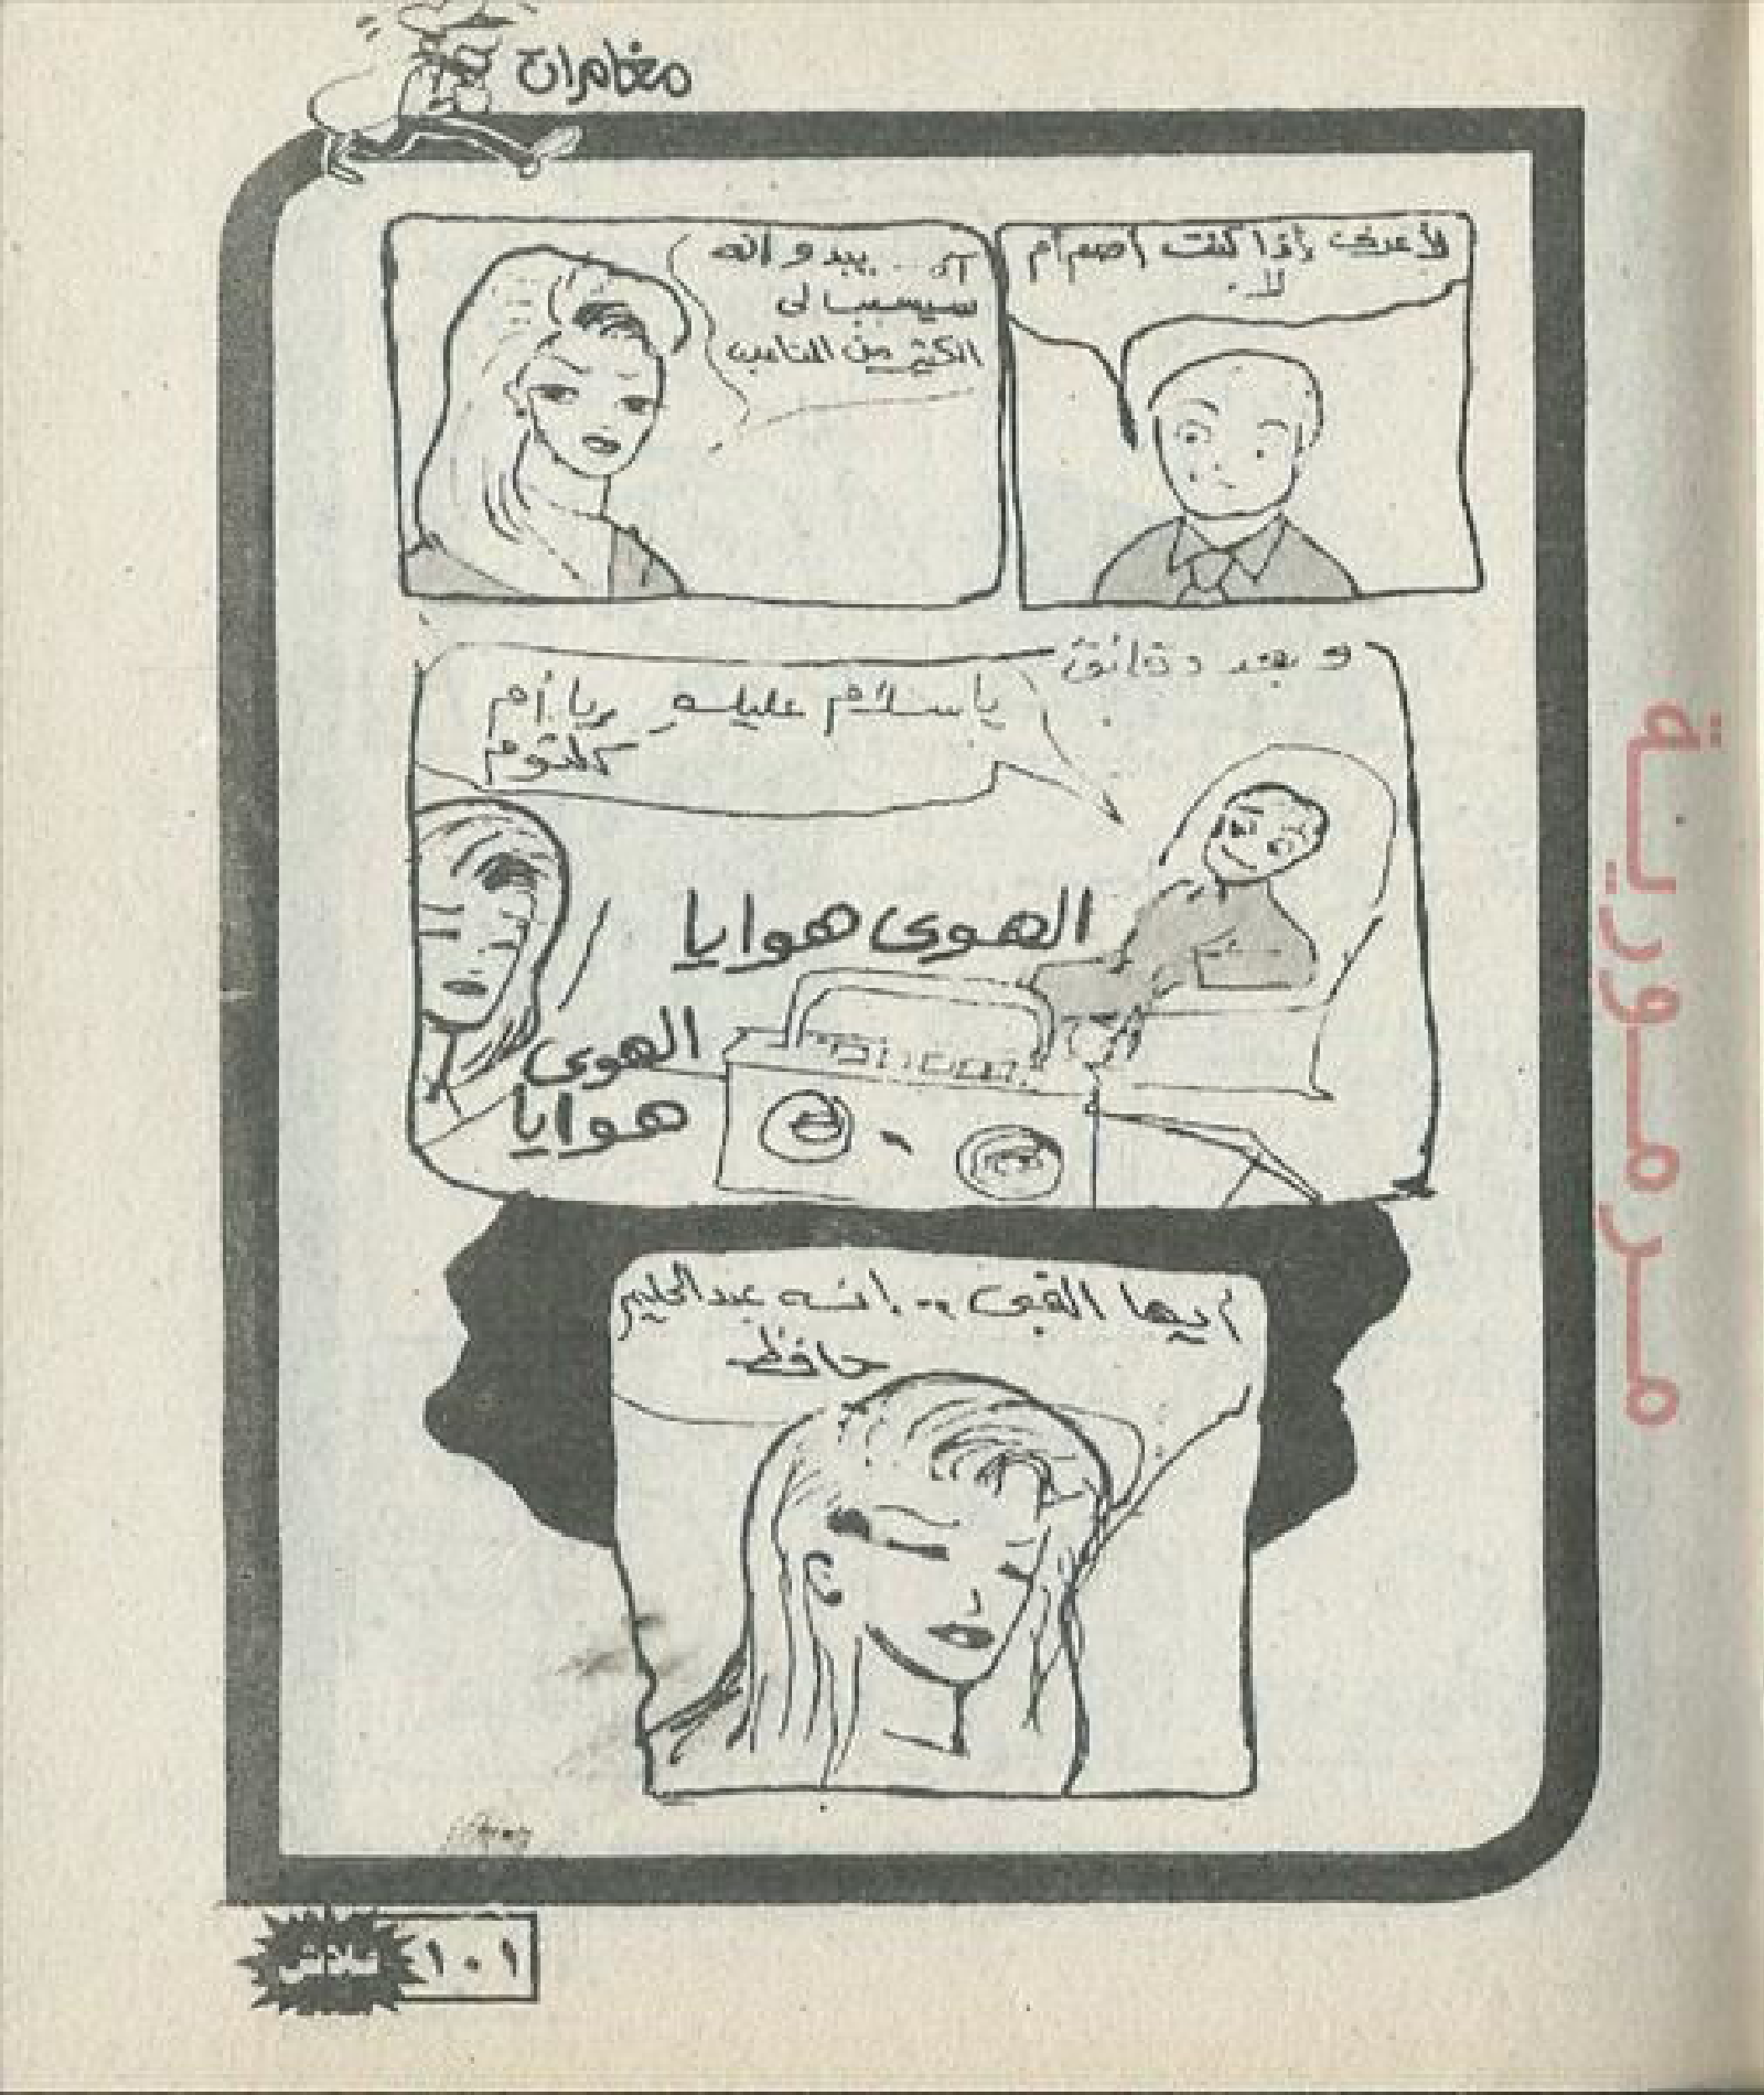 مغامرات
لأعرف إذا كنت أصم أم
لا.
آه... يبدو أنه
سيسبب لى
الكثير من المتاعب
وبعد دقائق
ياسلام عليكم يا أم
كلثوم
الهوى هوايا
الهوى
هوايا
أيها الغبى .. إنه عبدالحليم
حافظ
١٠١ فلاش
مرمورية